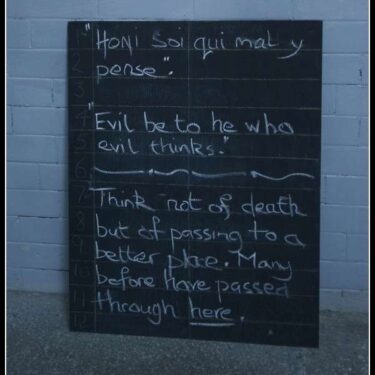 1 "Honi Soi qui mal y
2 pense".
3
4 "Evil be to he who
5 evil thinks."
6
7 Think not of death
8 but of passing to a
9 better place. Many
10 before have passed
11 through here.
12